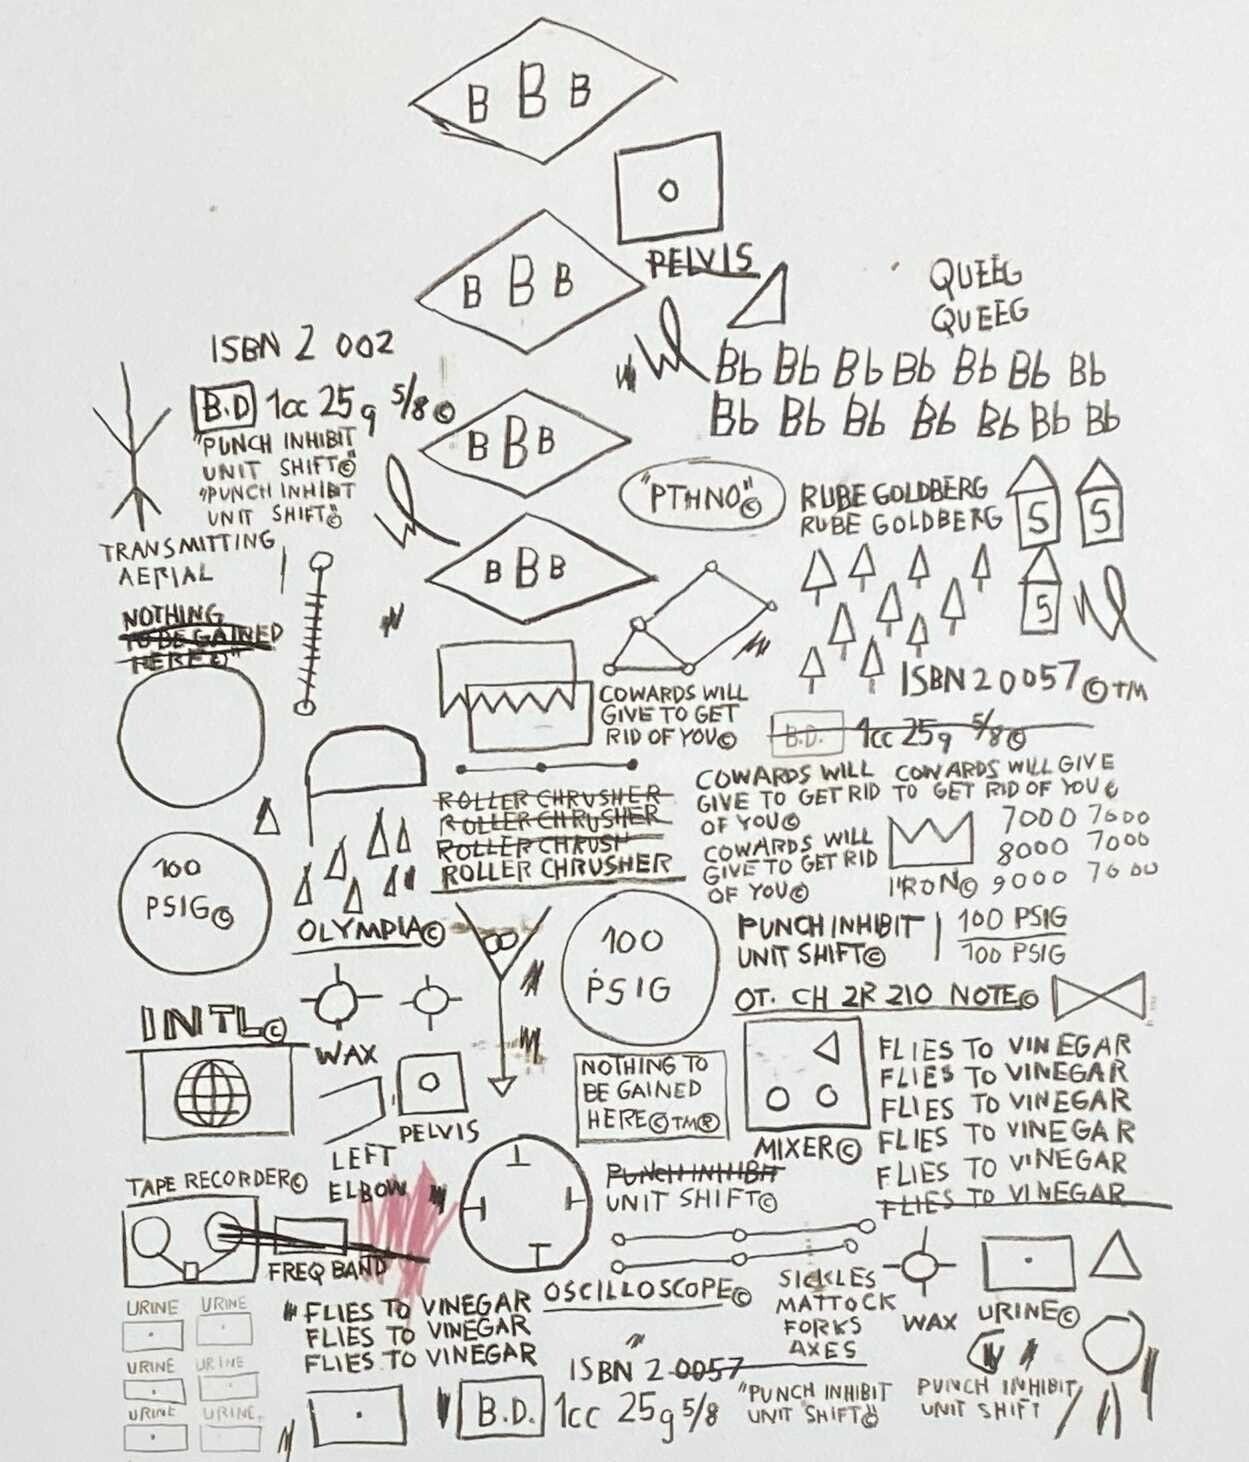 B B B
PELVIS
B B B
QUEEG
QUEEG
ISBN 2 002
Bb Bb Bb Bb Bb Bb Bb
Bb Bb Bb Bb Bb Bb Bb
B.D 1cc 25g 5/8 ©
"PUNCH INHIBIT
UNIT SHIFT©"
"PUNCH INHIBIT
UNIT SHIFT©
B B B
"PTHNO"©
RUBE GOLDBERG
RUBE GOLDBERG
5 5
5
TRANSMITTING
AERIAL
B B B
NOTHING
TO BE GAINED
HERE©"
ISBN 2 0057 © TM
COWARDS WILL
GIVE TO GET
RID OF YOU©
B.D. 1cc 25g 5/8©
ROLLER CHRUSHER
ROLLER CHRUSHER
ROLLER CHRUSH
ROLLER CHRUSHER
COWARDS WILL
GIVE TO GET RID
OF YOU©
COWARDS WILL
GIVE TO GET RID
OF YOU©
COWARDS WILL GIVE
TO GET RID OF YOU©
7000 7600
8000 7000
I'RON© 9000 7600
100
PSIG©
OLYMPIA©
100
PSIG
PUNCH INHIBIT
UNIT SHIFT©
100 PSIG
100 PSIG
OT. CH 2R 210 NOTE©
INTL©
WAX
PELVIS
LEFT
ELBOW
NOTHING TO
BE GAINED
HERE©TM®
MIXER©
FLIES TO VINEGAR
FLIES TO VINEGAR
FLIES TO VINEGAR
FLIES TO VINEGAR
FLIES TO VINEGAR
FLIES TO VINEGAR
TAPE RECORDER©
FREQ BAND
PUNCH INHIBIT
UNIT SHIFT©
OSCILLOSCOPE©
SICKLES
MATTOCK
FORKS
AXES
WAX
URINE©
URINE URINE
URINE URINE
URINE URINE
FLIES TO VINEGAR
FLIES TO VINEGAR
FLIES TO VINEGAR
ISBN 2 0057
B.D. 1cc 25g 5/8
"PUNCH INHIBIT
UNIT SHIFT©"
PUNCH INHIBIT
UNIT SHIFT